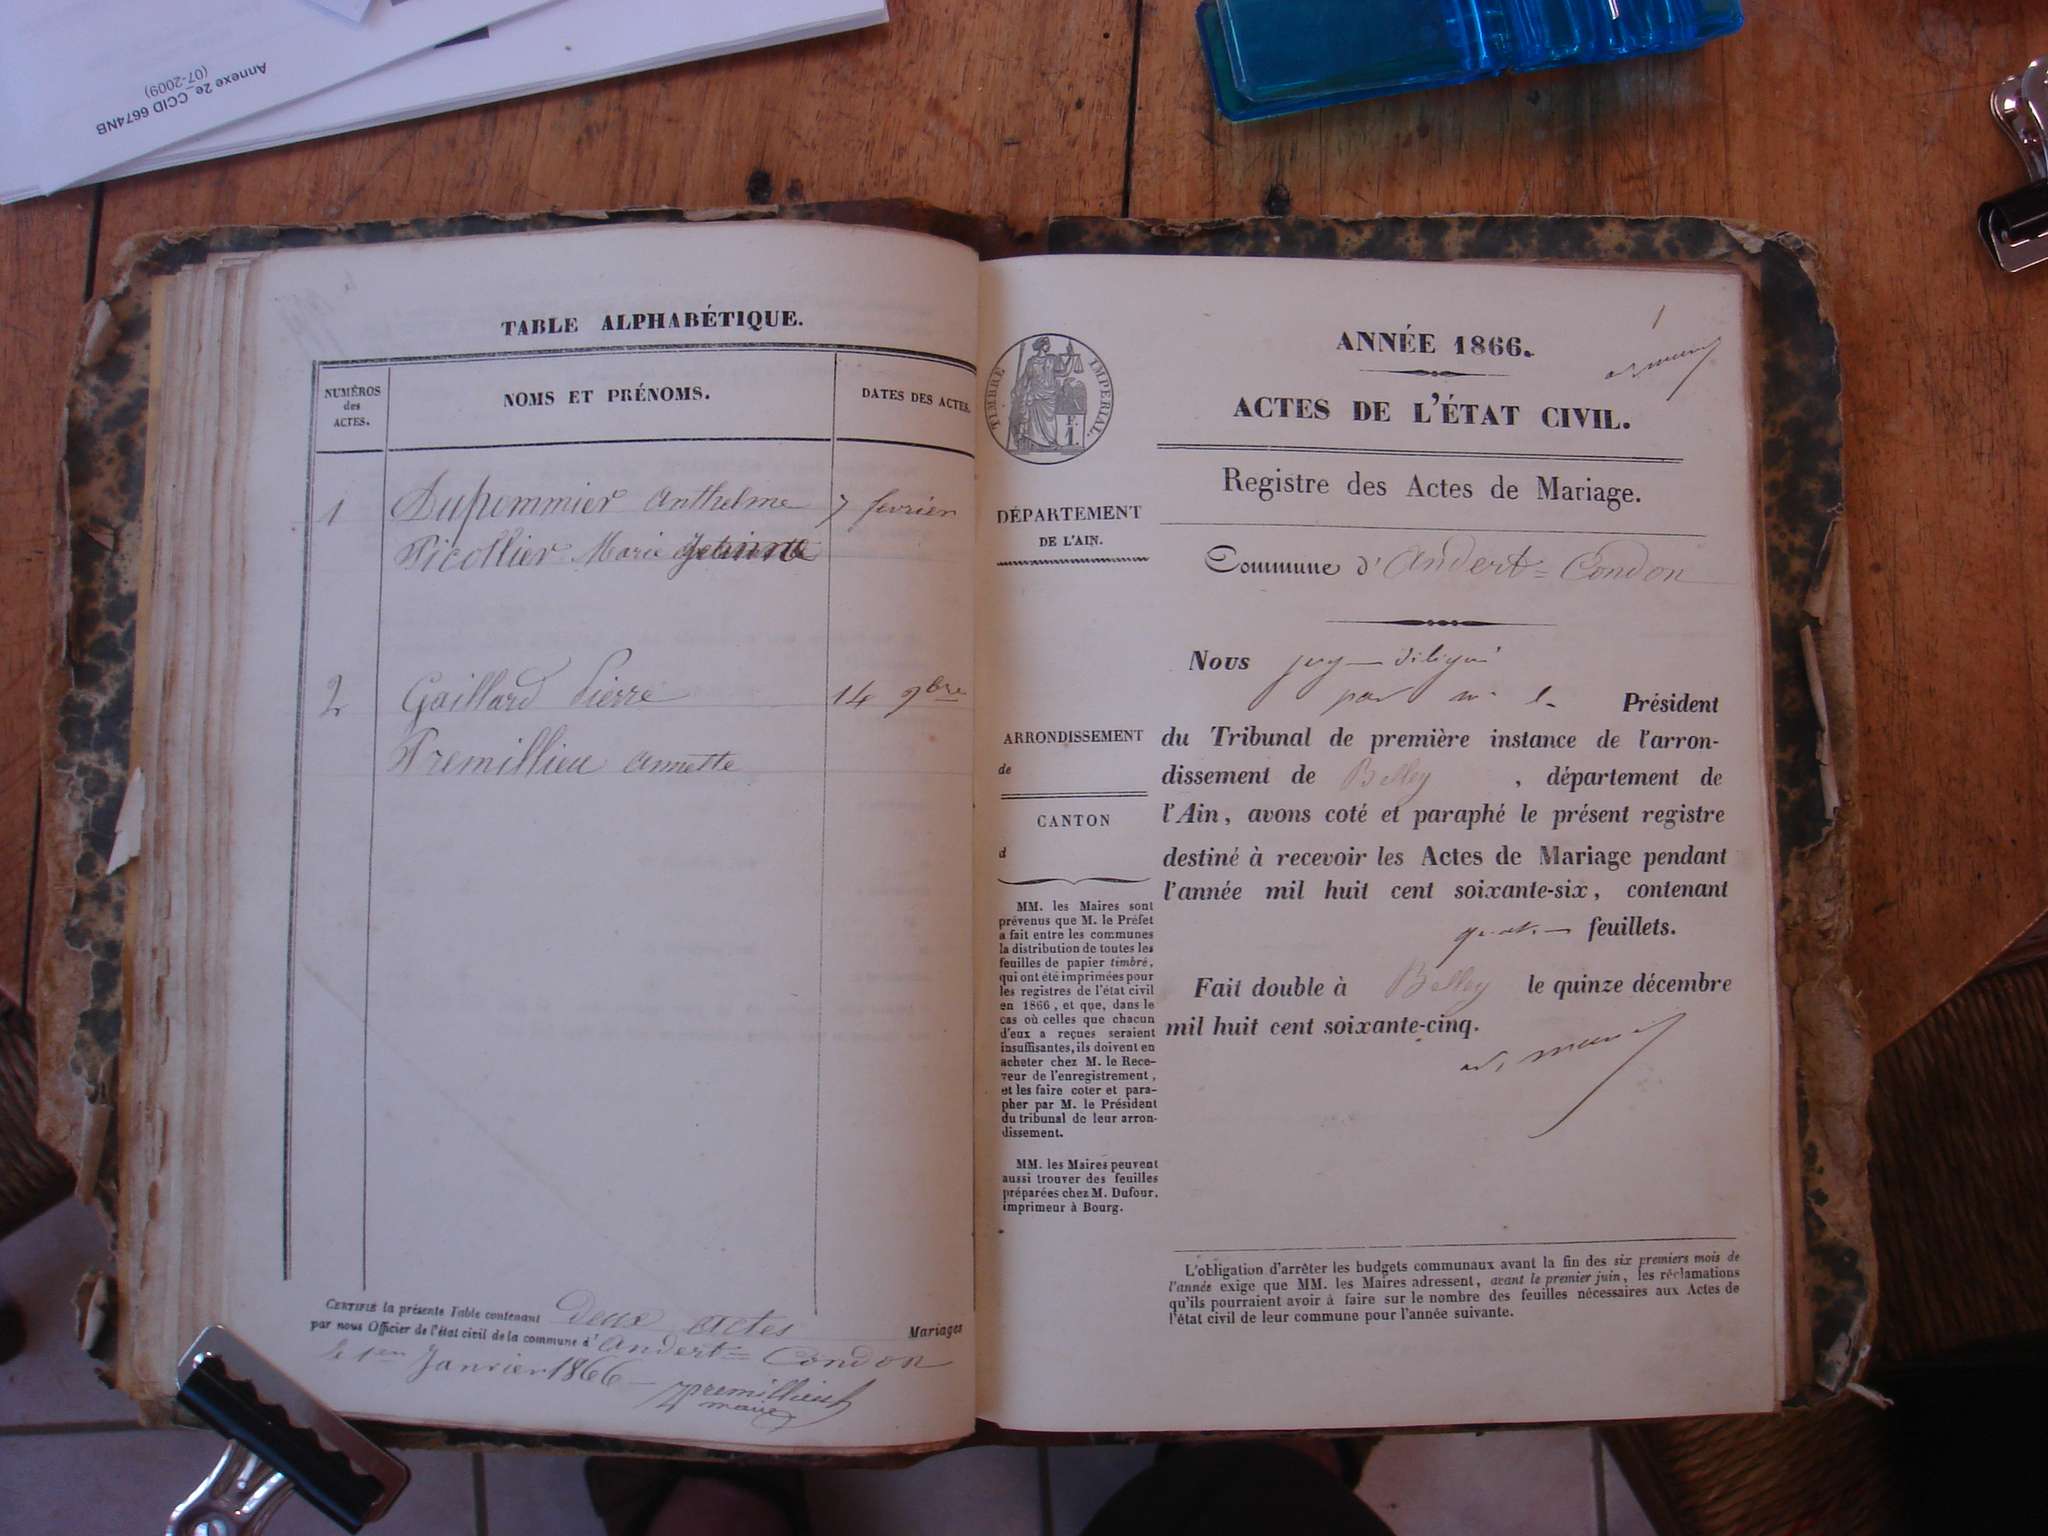 Annexe 2e_CCID 6674NB
(07-2009)
TABLE ALPHABÉTIQUE.
NUMÉROS
des
ACTES.
NOMS ET PRÉNOMS.
DATES DES ACTES.
1 Dupommier Anthelme 7 fevrier
Picollier Marie
2 Gaillard Pierre 14 9bre
Premillieu Annette
CERTIFIÉ la présente Table contenant Deux actes Mariages
par nous Officier de l'état civil de la commune d' Andert=Condon
le 1er Janvier 1866
premillieux
maire
1
ANNÉE 1866.
ACTES DE L'ÉTAT CIVIL.
Registre des Actes de Mariage.
TIMBRE IMPERIAL.
F.
1.
DÉPARTEMENT
DE L'AIN.
Commune d'Andert=Condon
Nous juge délégué
par mr le Président
du Tribunal de première instance de l'arron-
dissement de Belley, département de
l'Ain, avons coté et paraphé le présent registre
destiné à recevoir les Actes de Mariage pendant
l'année mil huit cent soixante-six, contenant
quatre feuillets.
Fait double à Belley le quinze décembre
mil huit cent soixante-cinq.
ARRONDISSEMENT
de
CANTON
d
MM. les Maires sont
prévenus que M. le Préfet
a fait entre les communes
la distribution de toutes les
feuilles de papier timbré,
qui ont été imprimées pour
les registres de l'état civil
en 1866, et que, dans le
cas où celles que chacun
d'eux a reçues seraient
insuffisantes, ils doivent en
acheter chez M. le Rece-
veur de l'enregistrement,
et les faire coter et para-
pher par M. le Président
du tribunal de leur arron-
dissement.
MM. les Maires peuvent
aussi trouver des feuilles
préparées chez M. Dufour,
imprimeur à Bourg.
L'obligation d'arrêter les budgets communaux avant la fin des six premiers mois de
l'année exige que MM. les Maires adressent, avant le premier juin, les réclamations
qu'ils pourraient avoir à faire sur le nombre des feuilles nécessaires aux Actes de
l'état civil de leur commune pour l'année suivante.